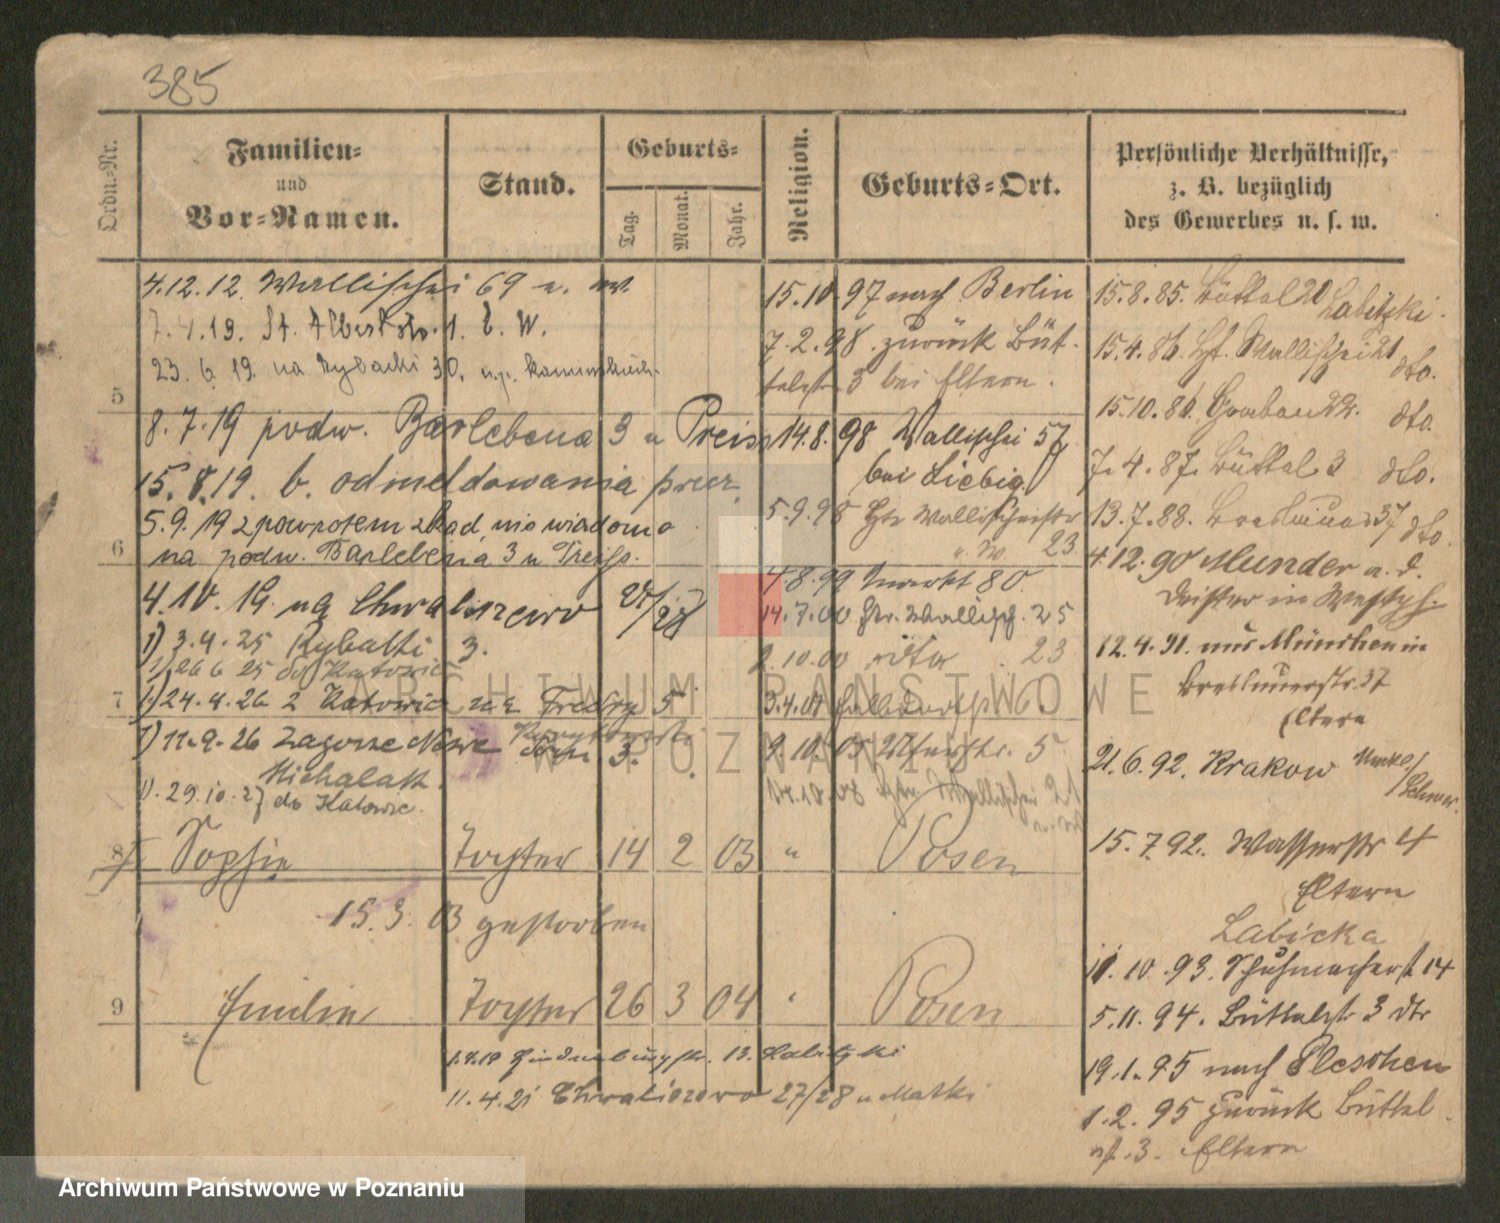 385
Ordn.-Nr.
Familien-
und
Vor-Namen.
Stand.
Geburts-
Tag.
Monat.
Jahr.
Religion.
Geburts-Ort.
Persönliche Verhältnisse,
z. B. bezüglich
des Gewerbes u. s. w.
4.12.12. Wallischei 69
7.4.19. St. Adalbertstr. 1.
23. 6. 19. na Rybacki 30.
5
8.7.19 podw. Barlebena 3 u Preiss
15.8.19. b. odmeldowania przez
5.9.19 z powrotem zkąd nie wiadomo
6
na podw. Barlebena 3 u Preiss.
4.10.19. na Chwaliszewo 27/28
1) 3.4.25 Rybaki 3.
1) 26 6 25 do Katowic
7
1) 24.4.26 z Katowic na Fredry 5
1) 11.9.26 Zagorze Nowe 3.
Michalak.
1). 29.10.27 do Katowic.
8 Sophie Tochter 14 2 03 " Posen
15.3.03 gestorben
9 Emilie Tochter 26 3 04 " Posen
Hindenburgstr. 13. Labitzki
11.4.21 Chwaliszewo 27/28 u Matki
15.10.97 nach Berlin
7.2.98. zurück Büt-
telstr. 3 bei Eltern.
14.8.98 Wallischei 57
bei Liebig
5.9.98 Wallischeistr
23
4.8.99 Markt 80.
14.7.00 Wallisch. 25
2.10.00 dito 23
3.4.01 Halbdorfstr 6.
9.10.05 Uferstr. 5
14.10.08 Wallischei 21
15.8.85. Büttel 20 Labitzki.
15.4.86. Wallischei 21 dto.
15.10.86. Graben 22. dto.
7.4.87. Büttel 3 dto.
13.7.88. Breslauer 37 dto.
4.12.90 Munder a. d.
Deister in Westph.
12.4.91. aus München in
Breslauerstr. 37
Eltern
21.6.92. Krakow
15.7.92. Wasserstr 4
Eltern
Labicka
11.10.93. Schuhmacherst 14
5.11.94. Büttelstr. 3 dto
19.1.95 nach Pleschen
1.2.95 zurück Büttel
st. 3. Eltern
ARCHIWUM PAŃSTWOWE
W POZNANIU
Archiwum Państwowe w Poznaniu